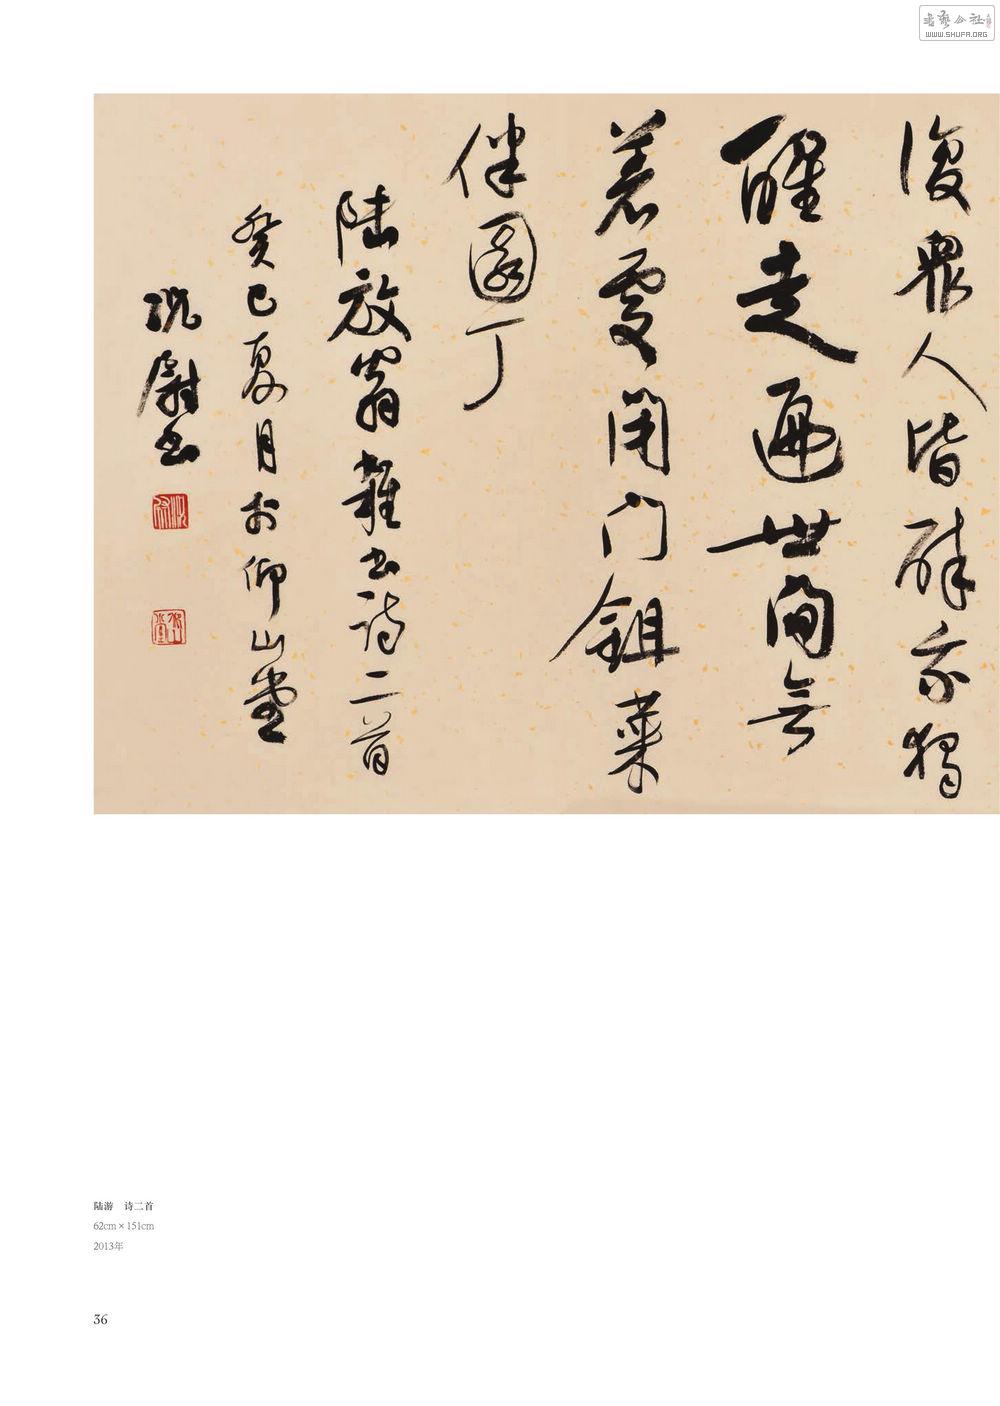 復眾人皆醉我獨
醒走遍世間無
著處閉門鉏菜
伴園丁
陆放翁雜书诗二首
癸巳夏月於仰山堂
况尉书
陆游 诗二首
62cm×151cm
2013年
36
WWW.SHUFA.ORG